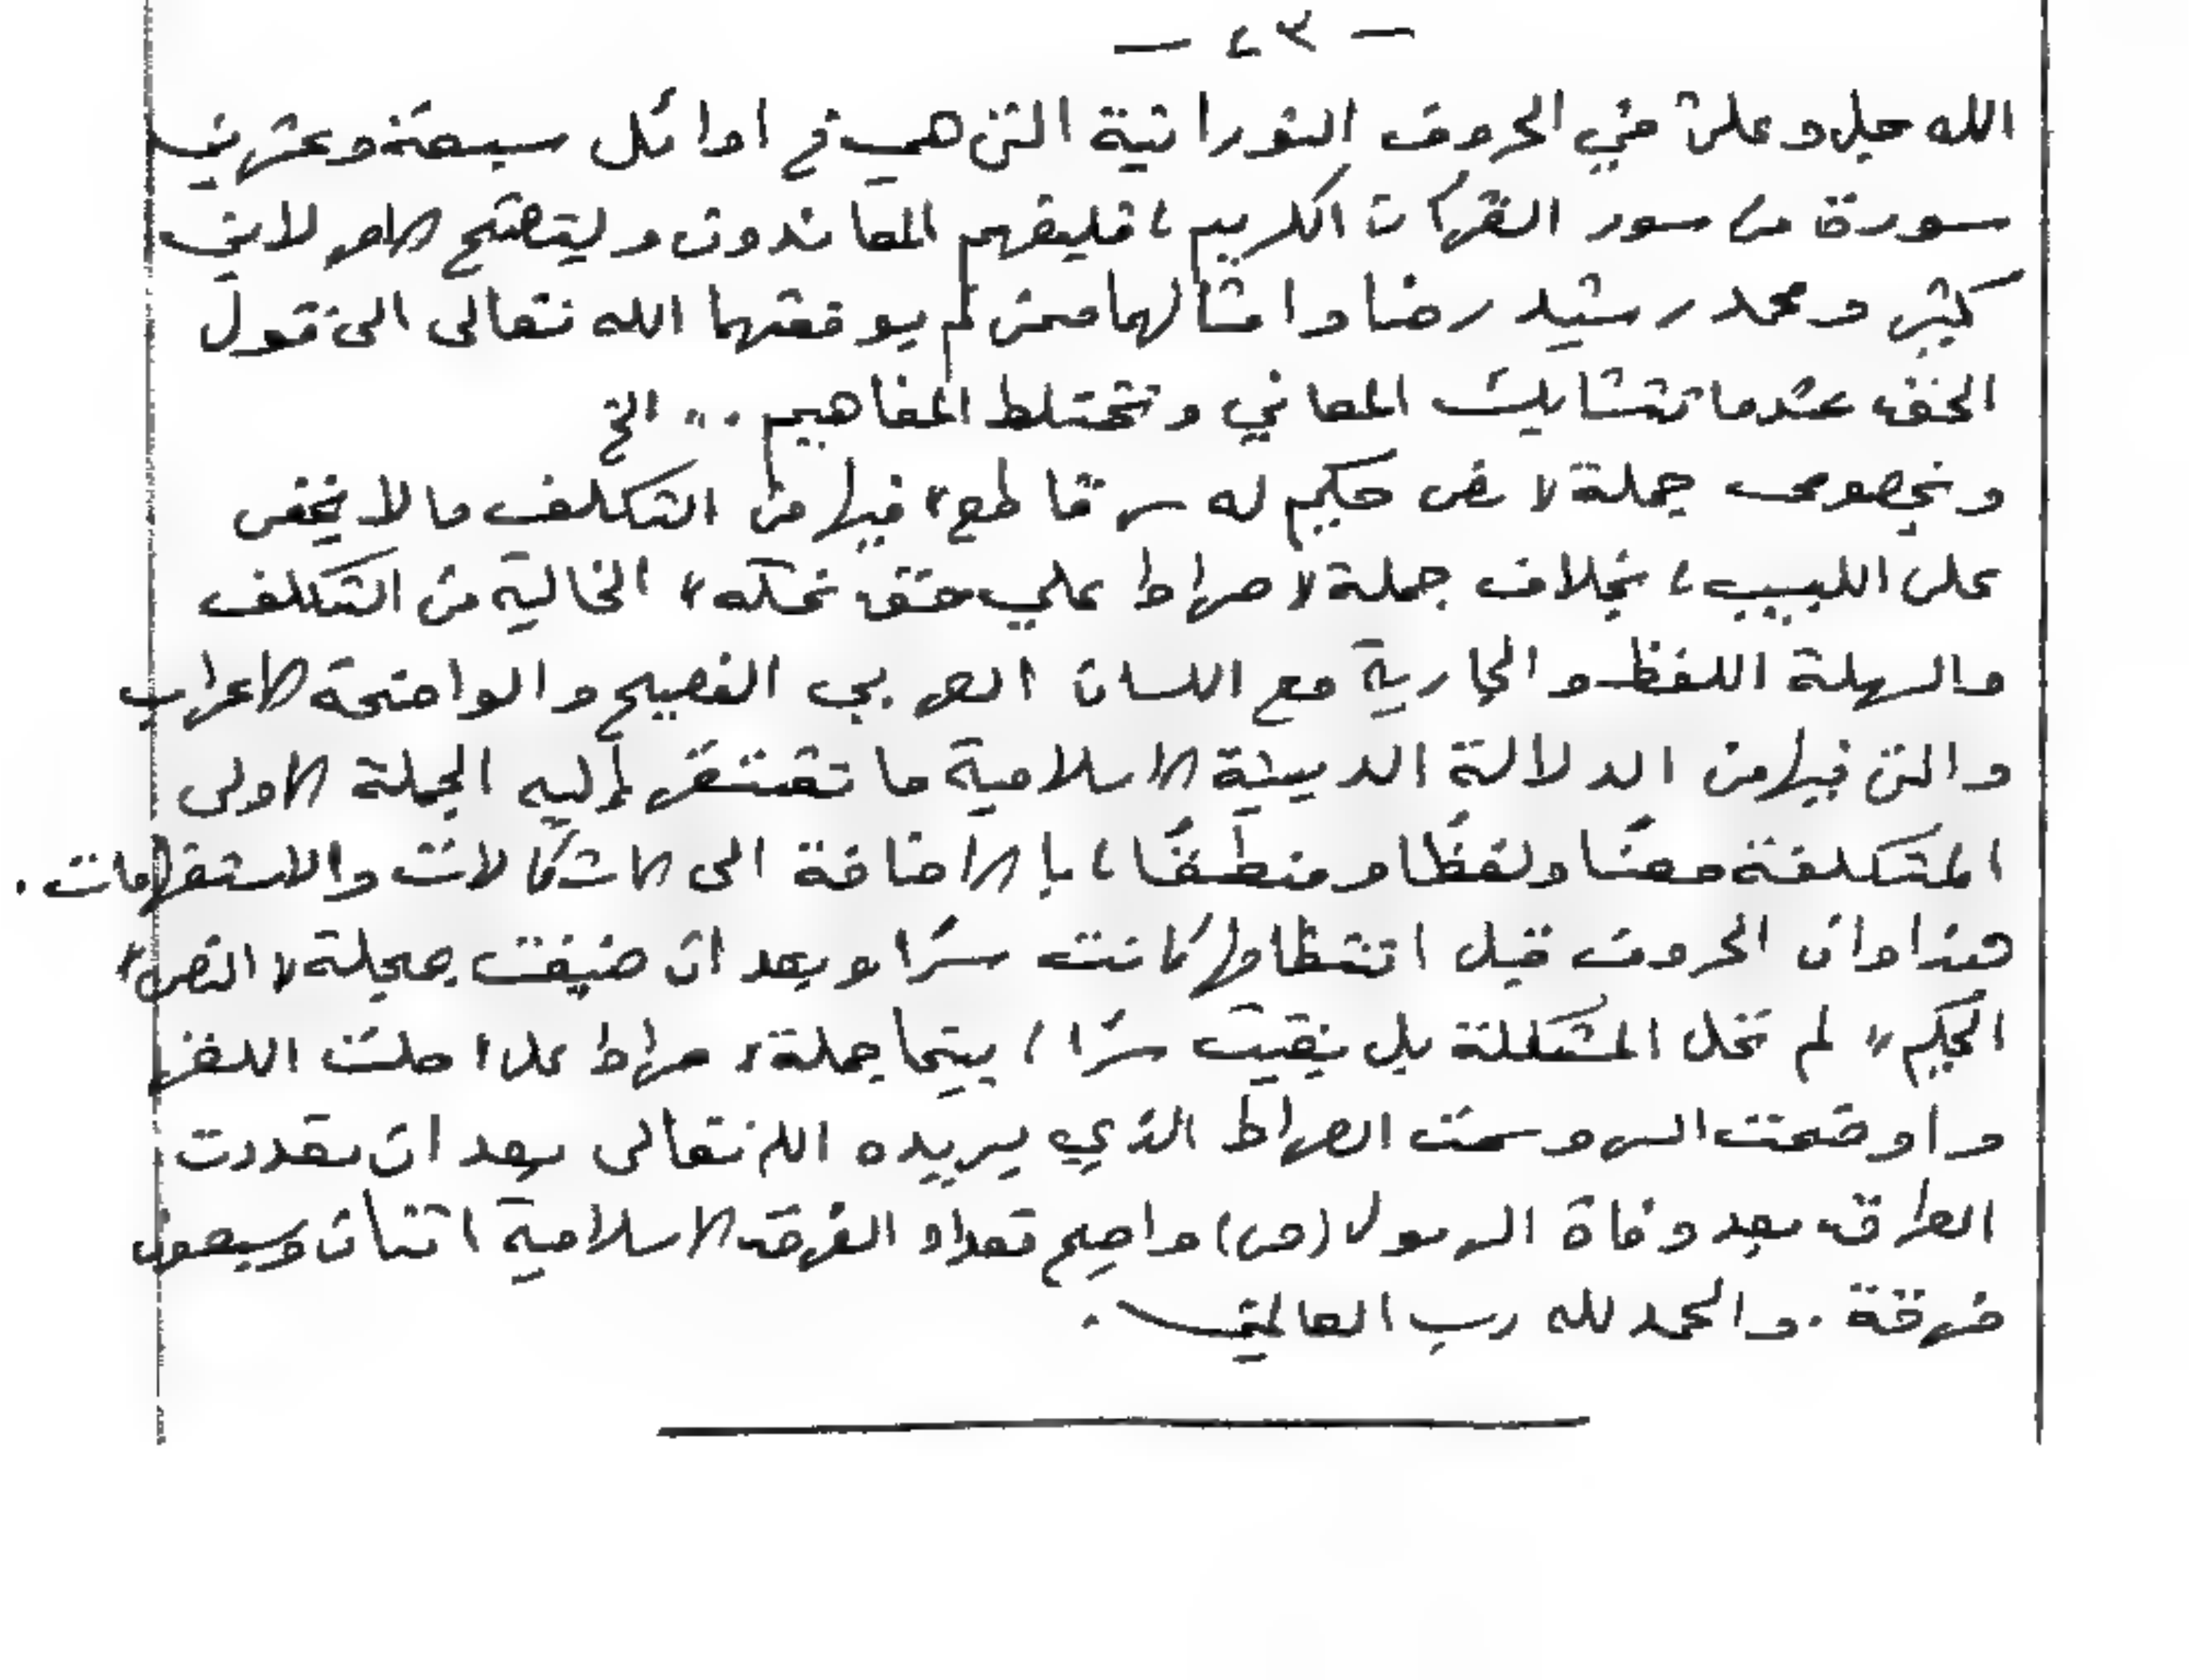 - ٢٣ -
الله جل وعلى في الحروف النورانية التي هي في اوائل سبعة وعشرين
سورة من سور القرآن الكريم، فليفهم المعاندون وليتضح الامر لابن
كثير ومحمد رشيد رضا وامثالهما ممن لم يوفقهما الله تعالى الى قول
الحق عندما تتشابك المعاني وتختلط المفاهيم... الخ
وبخصوص جملة «نص حكيم له سر قاطع» فيها من التكلف ما لا يخفى
على اللبيب، بخلاف جملة «صراط علي حق نمسكه» الخالية من التكلف
والسهلة اللفظ والجارية مع اللسان العربي الفصيح والواضحة الاعراب
والتي فيها من الدلالة الدينية الاسلامية ما تفتقر إليه الجملة الاولى
المتكلفة معنًا ولفظًا ومنطقًا، بالاضافة الى الاشكالات والاستفهامات.
هذا وان الحروف قبل انتظامها كانت سرًا وبعد ان ضيفت بجملة «النص
الحكيم» لم تحل المشكلة بل بقيت سرًا، بينما جملة، صراط علي، حلت اللغز
واوضحت السر وسمت الصراط الذي يريده الله تعالى بعد ان تعددت
الطرق بعد وفاة الرسول (ص) واصبح تعداد الفرق الاسلامية اثنان وسبعون
فرقة. والحمد لله رب العالمين.